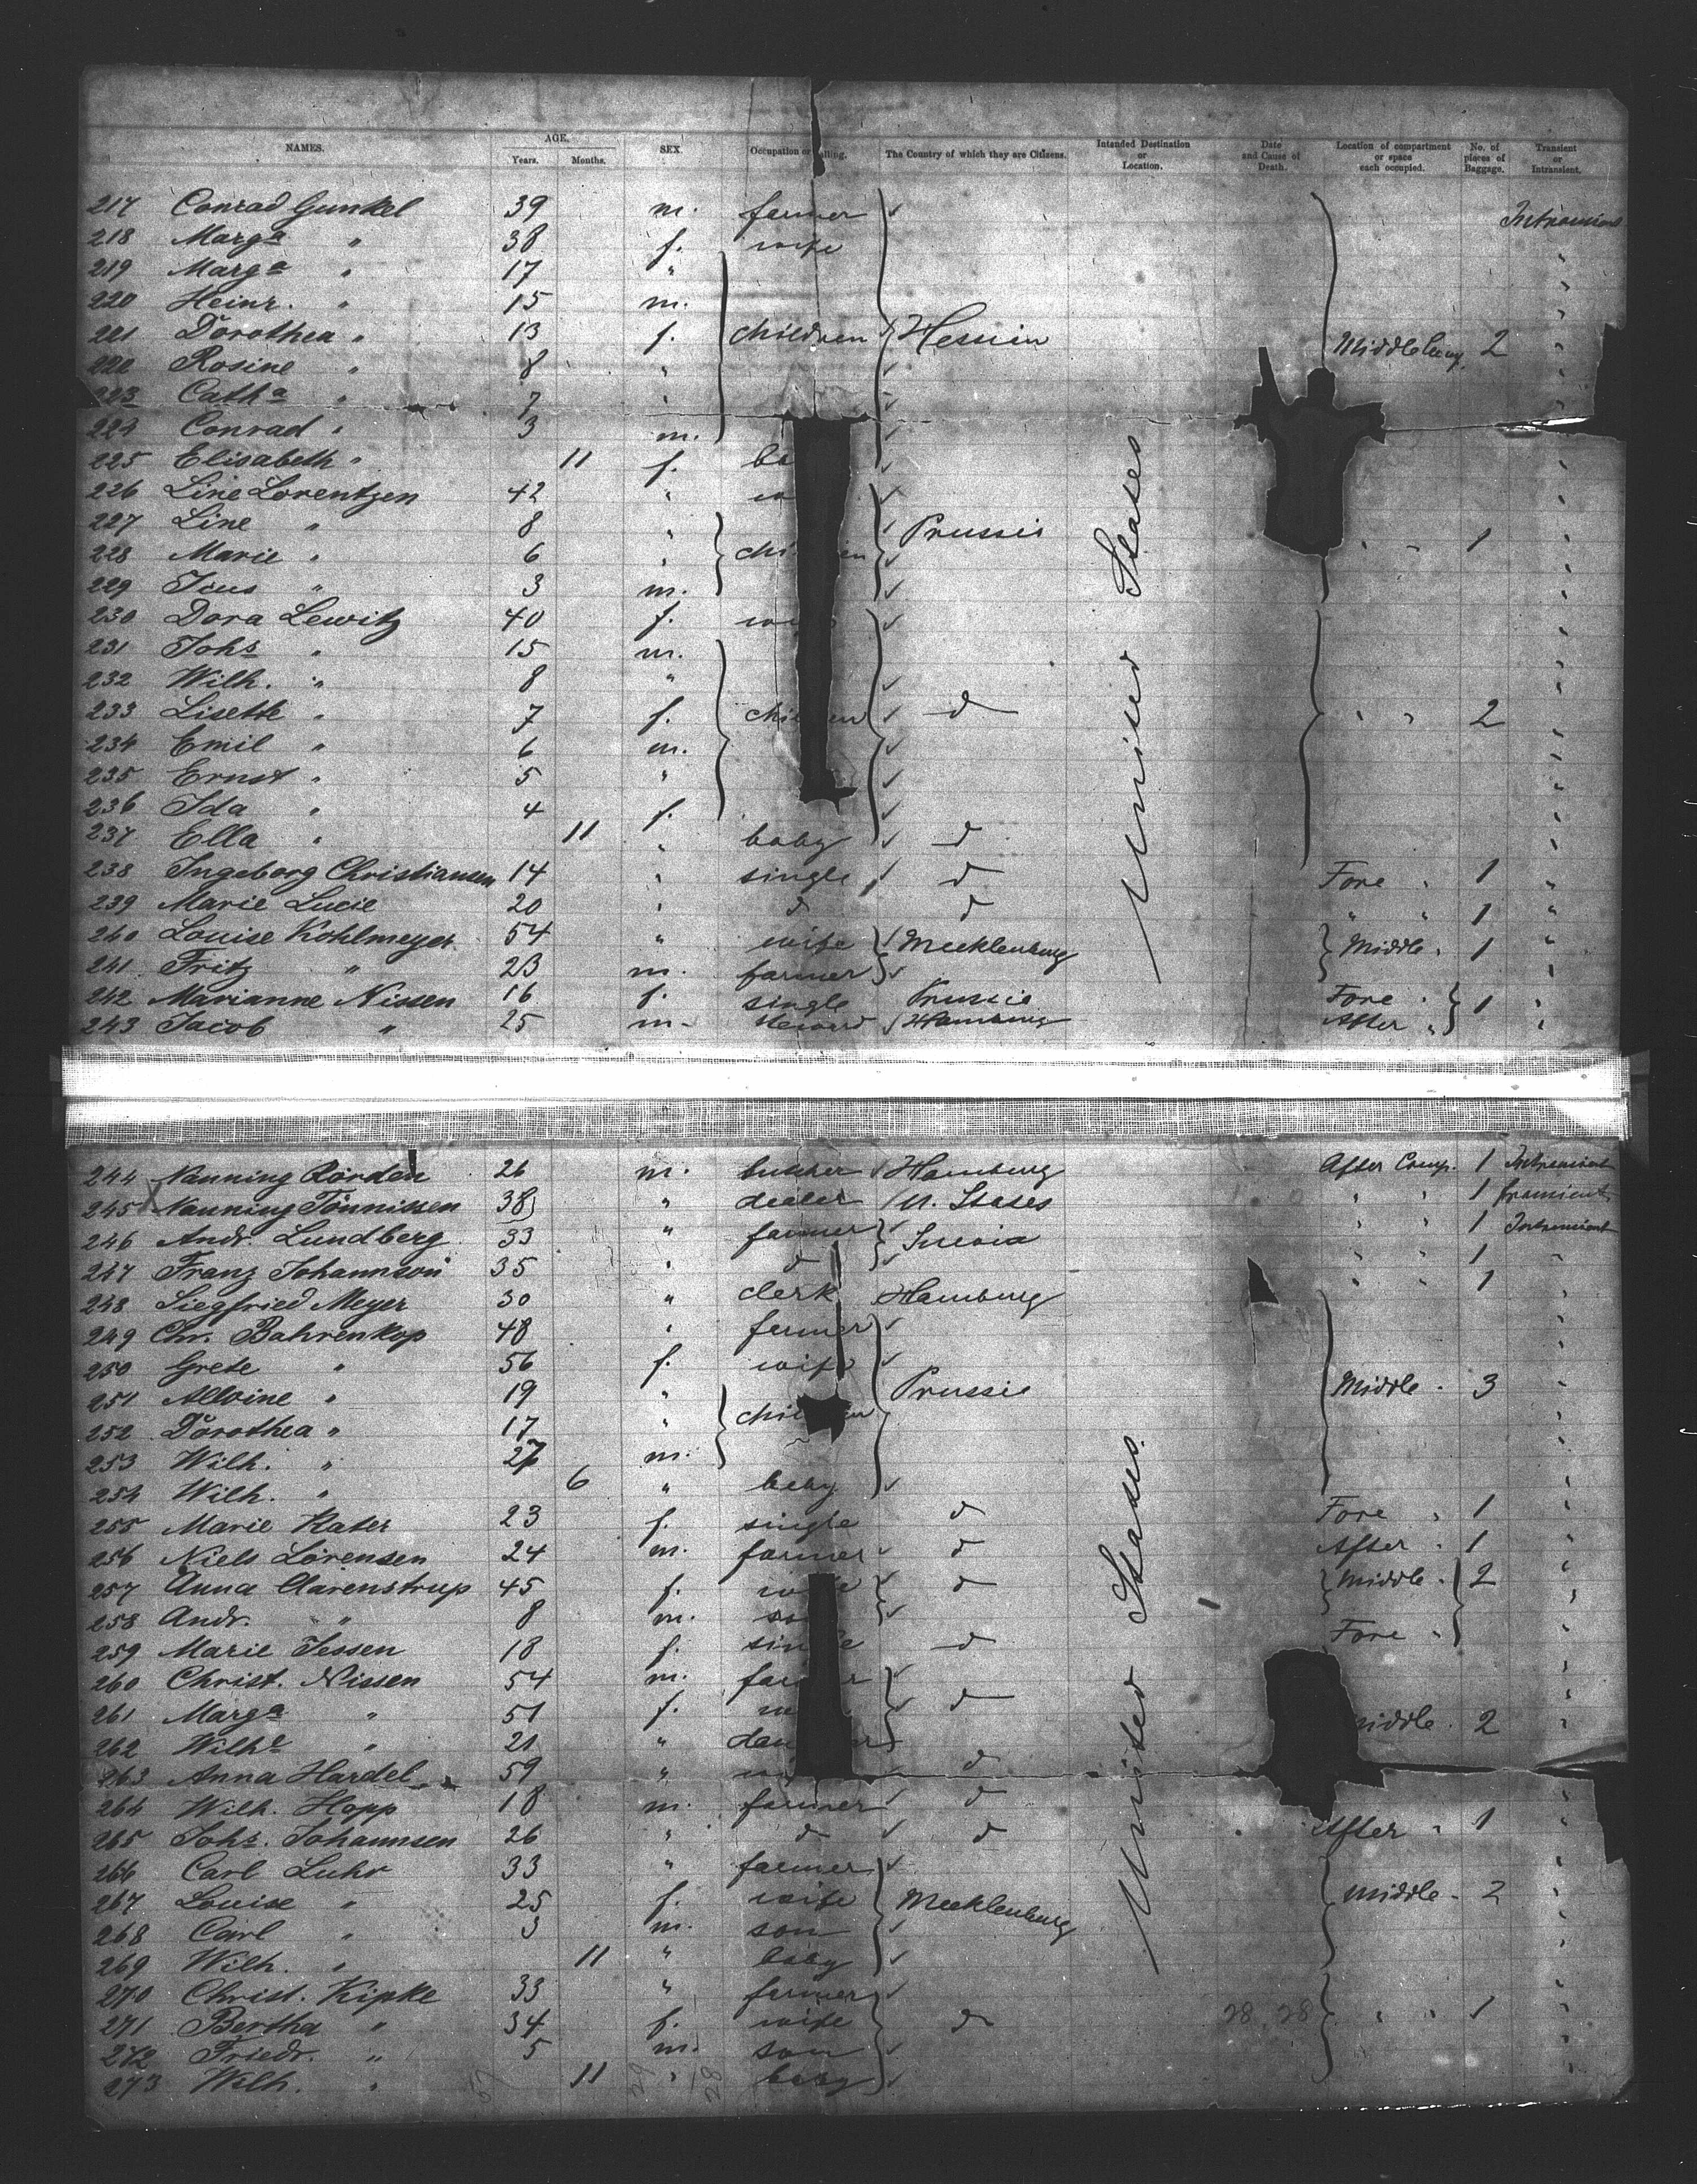 NAMES. AGE. Years. Months. SEX. Occupation or calling. The Country of which they are Citizens. Intended Destination or Location. Date and Cause of Death. Location of compartment or space each occupied. No. of pieces of Baggage. Transient or Intransient.
217 Conrad Gunkel 39 m. farmer Intransient
218 Marga " 38 f. wife
219 Marga " 17 "
220 Heinr. " 15 m.
221 Dorothea " 13 f. children Hessen Middle Comp. 2
222 Rosine " 8 "
223 Catha " 7 "
224 Conrad " 3 m.
225 Elisabeth " 11 f. ba
226 Line Lorentzen 42 "
227 Line " 8 " Prussia
228 Marie " 6 " children " " 1
229 " 3 m.
230 Dora Lewitz 40 f.
231 Johs " 15 m.
232 Wilh. " 8 "
233 Lisette " 7 f. children d " " 2
234 Emil " 6 m.
235 Ernst " 5 "
236 Ida " 4 f.
237 Ella " 11 " baby d
238 Ingeborg Christiansen 14 " single d Fore " 1 "
239 Marie Lucie 20 " d d " " 1 "
240 Louise Kohlmeyer 54 " wife Mecklenburg Middle " 1 "
241 Fritz " 23 m. farmer
242 Marianne Nissen 16 f. single Prussia Fore " 1
243 Jacob " 25 m. Steward Hamburg After "
United States
244 Nanning Rörden 26 m. butcher Hamburg After Comp. 1 Intransient
245 Nanning Tönnissen 38 " dealer U. States " " 1 transient
246 Andr. Lundberg 33 " farmer Suecia " " 1 Intransient
247 Franz Johannson 35 " d " " 1 "
248 Siegfried Meyer 30 " clerk Hamburg " " 1
249 Chr. Bahrenkop 48 " farmer
250 Grete " 56 f. wife
251 Alwine " 19 " Prussia Middle " 3
252 Dorothea " 17 " children
253 Wilh. " m.
254 Wilh. " 6 " baby
255 Marie Kater 23 f. single d Fore " 1
256 Niels Lorensen 24 m. farmer d After " 1
257 Anna Clarenstrup 45 f. wife d Middle " 2
258 Andr. " 8 m. so
259 Marie Jessen 18 f. single d Fore "
260 Christ. Nissen 54 m. farmer
261 Marga " 51 f. d Middle " 2
262 Wilhe " 21 "
263 Anna Hardel 59 " d
264 Wilh. Hopp 18 m. farmer d
265 Johs. Johannsen 26 " d d After " 1
266 Carl Luhr 33 " farmer
267 Louise " 25 f. wife Mecklenburg Middle " 2
268 Carl " 3 m. son
269 Wilh. " 11 " baby
270 Christ. Kipke 33 " farmer
271 Bertha " 34 f. wife d 28 28 " " 1
272 Friedr. " 5 m. son
273 Wilh. " 11 " baby
United States.